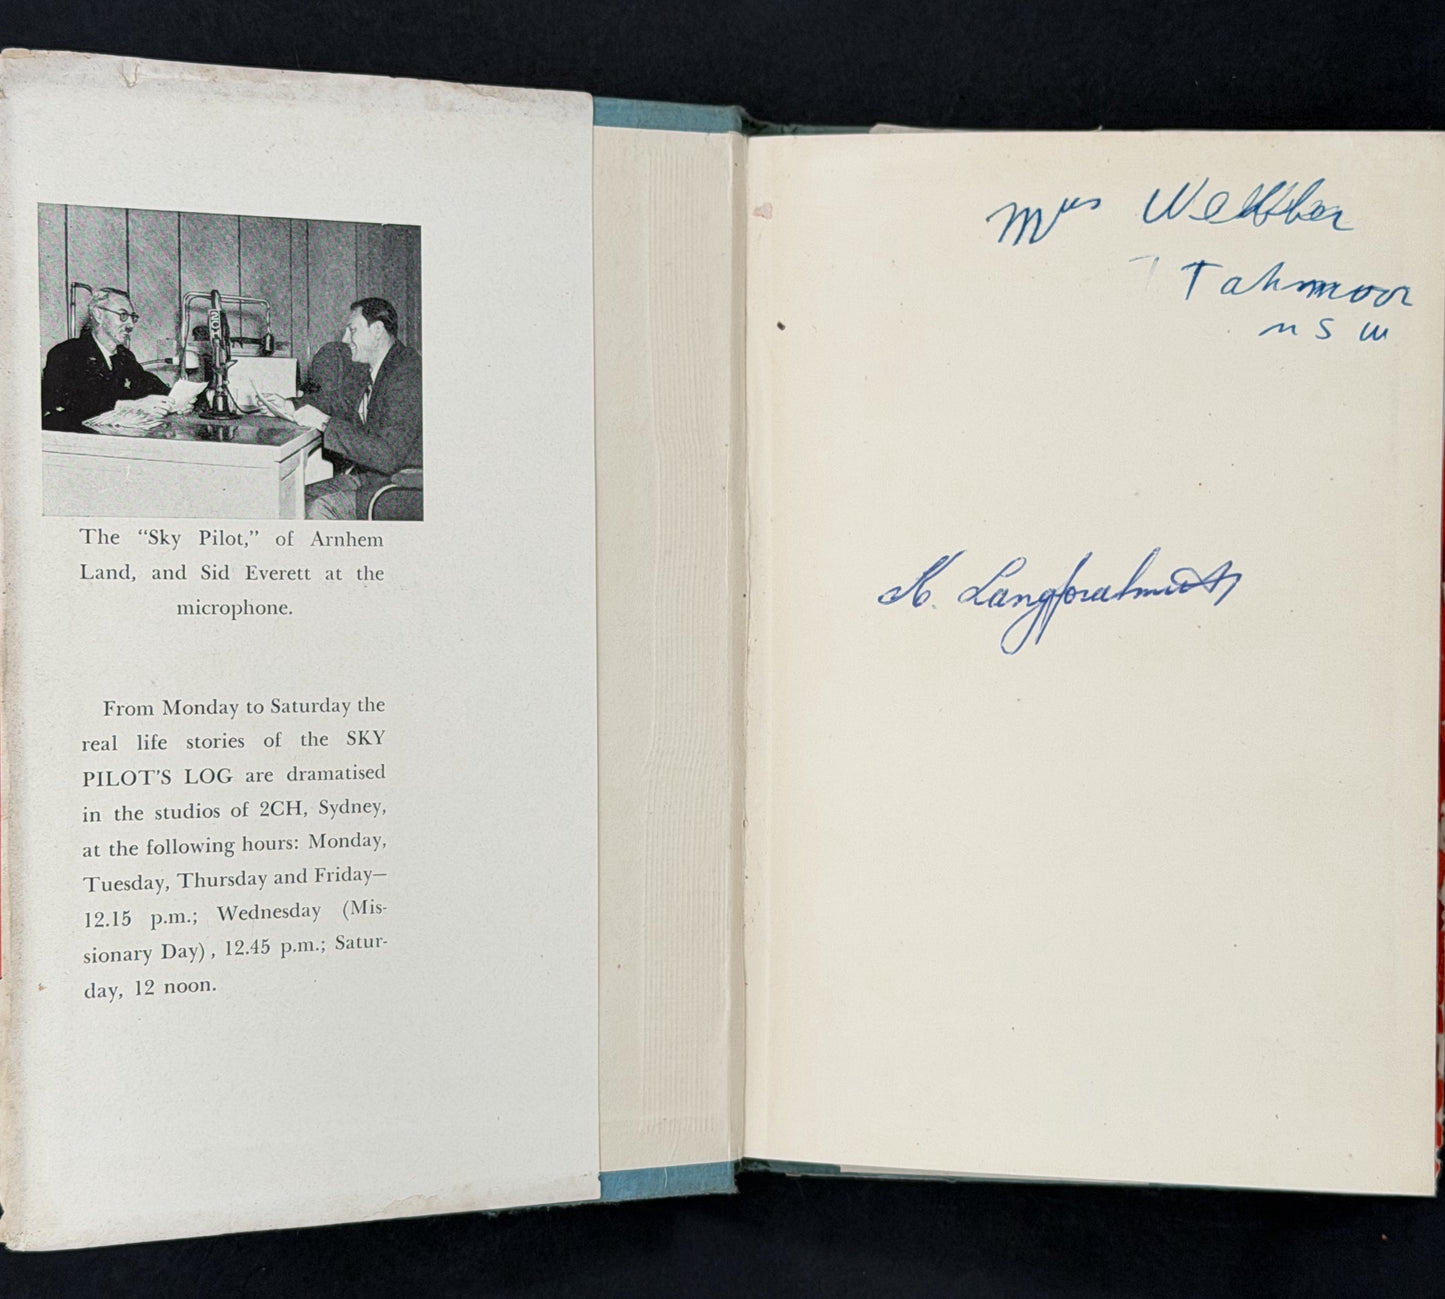 The “Sky Pilot,” of Arnhem
Land, and Sid Everett at the
microphone.
From Monday to Saturday the
real life stories of the SKY
PILOT’S LOG are dramatised
in the studios of 2CH, Sydney,
at the following hours: Monday,
Tuesday, Thursday and Friday—
12.15 p.m.; Wednesday (Mis-
sionary Day), 12.45 p.m.; Satur-
day, 12 noon.
Mrs
Tahmoor
N S W
Langfordsmith